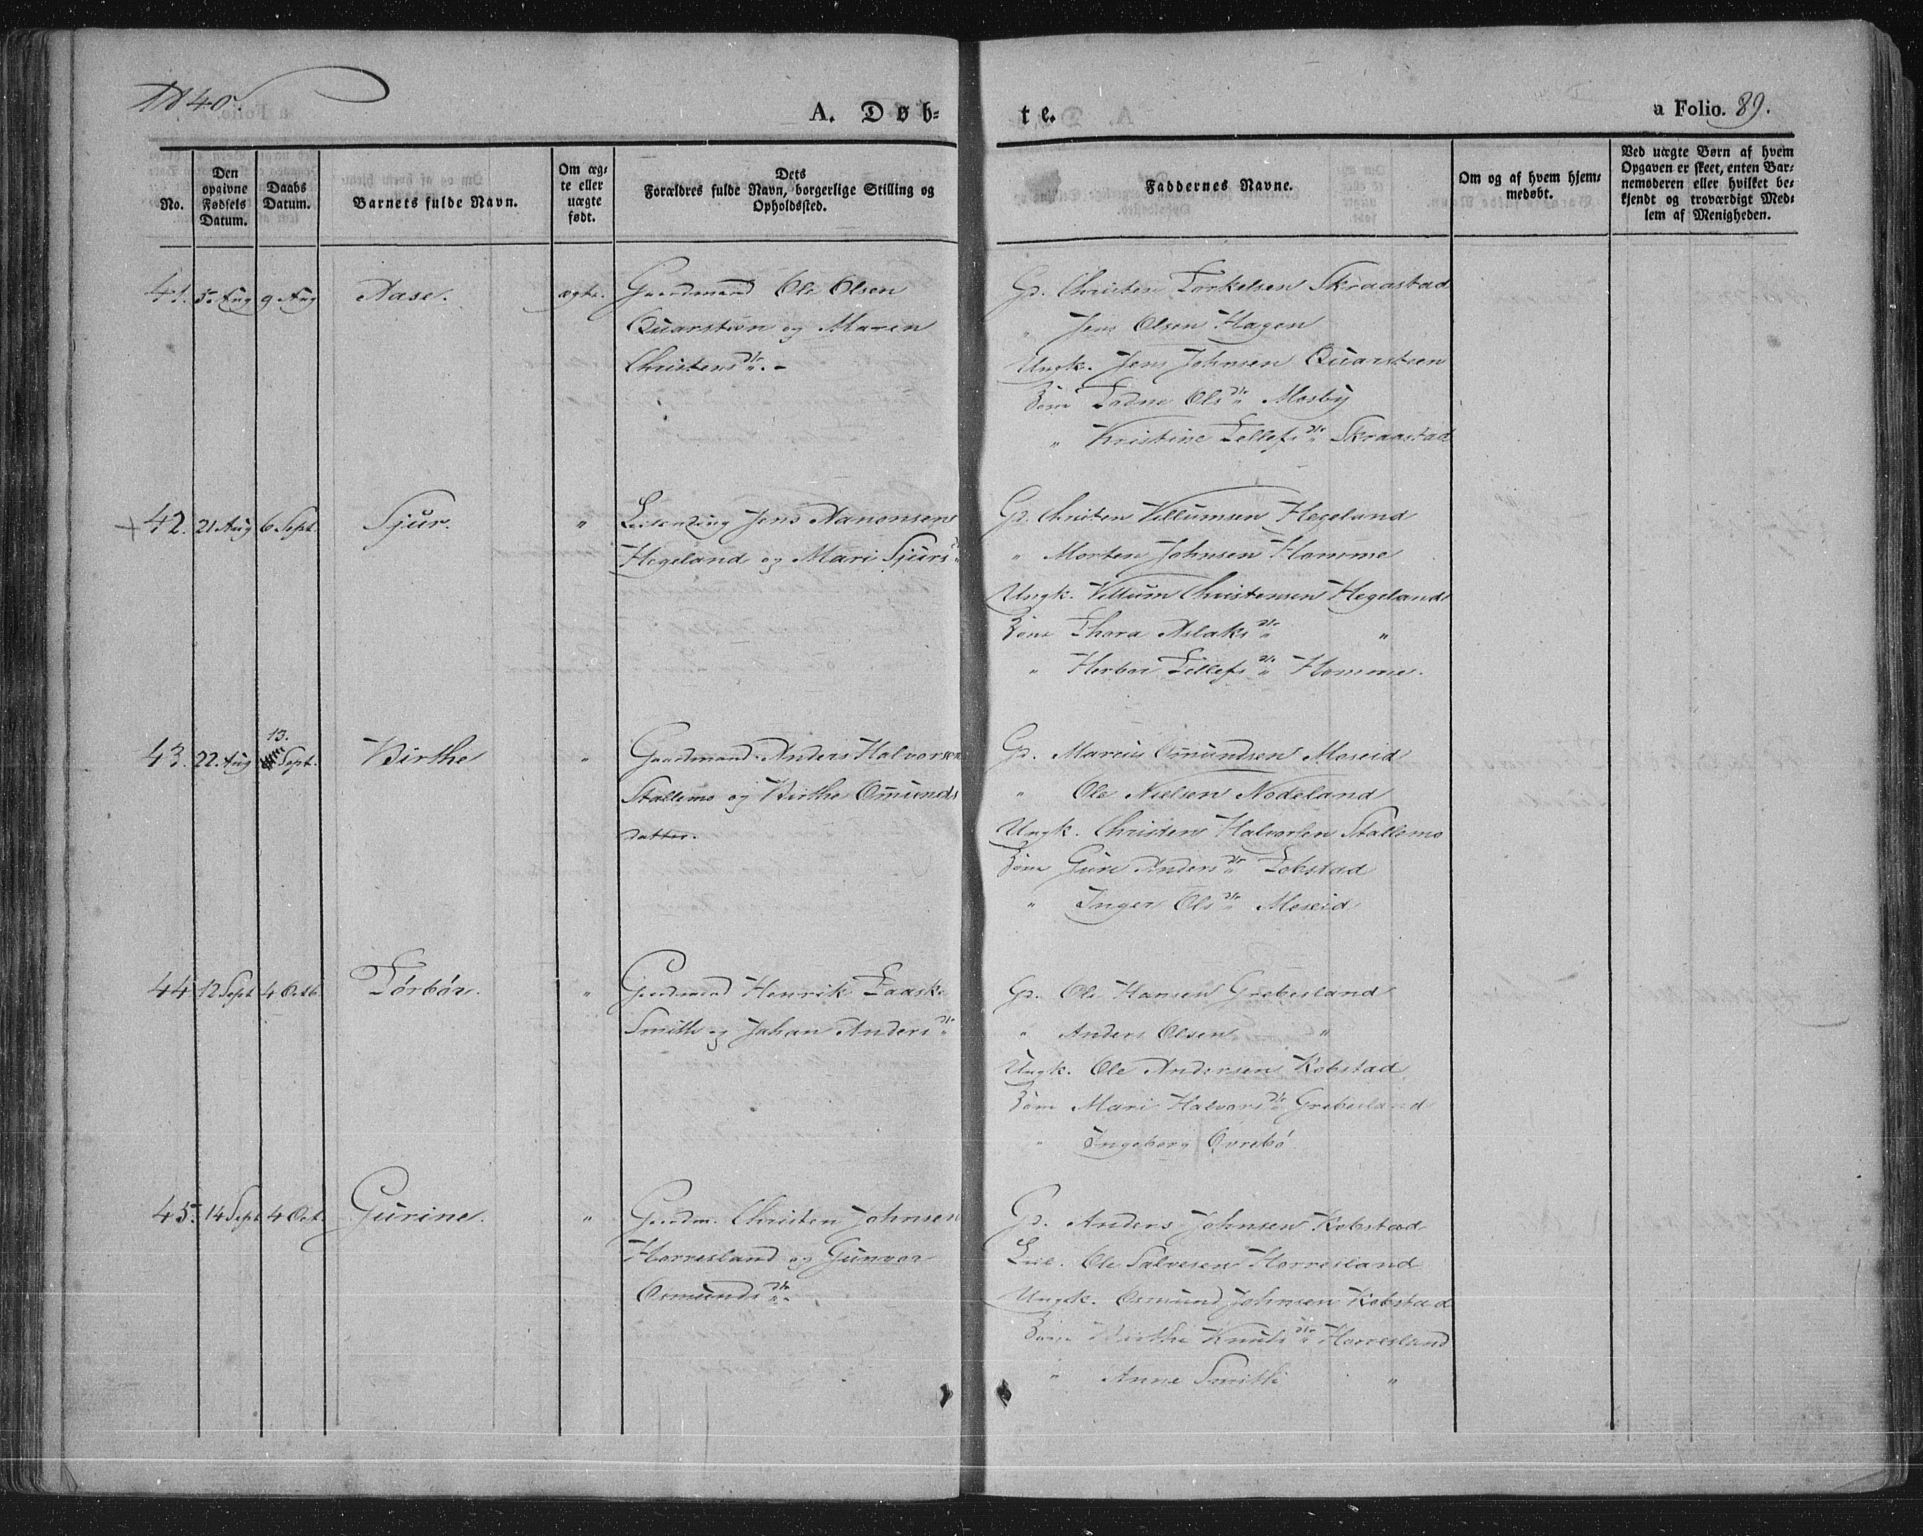 1840.
A. Døb-
te.
a Folio. 89.
No.
Den opgivne Fødsels Datum.
Daabs Datum.
Barnets fulde Navn.
Om ægte eller uægte født.
Dets Forældres fulde Navn, borgerlige Stilling og Opholdssted.
Faddernes Navne.
Om og af hvem hjemmedøbt.
Ved uægte Børn af hvem Opgaven er skeet, enten Barnemoderen eller hvilket bekjendt og troværdigt Medlem af Menigheden.
41. 5 Aug 9 Aug Aase. ægte.
Gaardmand Ole Olsen
Quarstein og Maren
Christensdtr. -
Gd. Christen Torkelsen Skraastad
" Jens Olsen Hagen
Ungk. Jens Johnsen Quarsteen
Kone Tadne Olsdtr Mosby
" Kristine Tellefsdtr Skraastad
+ 42. 21 Aug 6 Sept. Sjur. "
Leilending Jens Aanonsen
Hegeland og Mari Sjursdtr
Gd. Christen Villumsen Hegeland
" Morten Johnsen Homme
Ungk. Villum Christensen Hegeland
Kone Thora Aslaksdtr "
" Herbor Tellefsdtr Homme.
43. 22. Aug 13. Sept. Birthe "
Gaardmand Anders Halvorsen
Stallemo og Birthe Omunds
datter.
Gd. Marcus Omundsen Moseid
" Ole Nielsen Nodeland
Ungk. Christen Halvorsen Stallemo
Kone Guri Andersdtr Kobstad
" Inger Olsdtr Moseid
44. 12 Sept 4 Octb. Torbør. "
Gaardmand Henrik Taaske
Smith og Johan Andersdtr
Gd. Ole Hansen Grebesland
" Anders Olsen "
Ungk. Ole Andersen Kobstad
Kone Mari Halvorsdtr Grebesland
" Ingeborg Øvrebø
45. 14 Sept 4 Oct. Gurine. "
Gaardm. Christen Johnsen
Horresland og Gunvor
Osmundsdtr.
Gd. Anders Johnsen Kobstad
Leil. Ole Salvesen Horresland
Ungk. Osmund Johnsen Kobstad
Kone Birthe Knutsdtr Horresland
" Anne Smith "